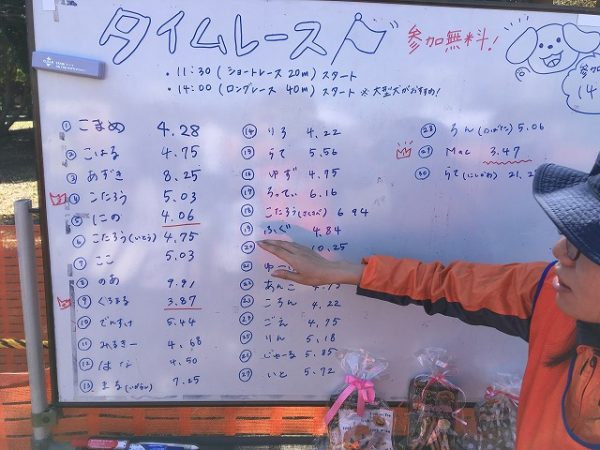 タイムレース
参加無料!
・11:30 (ショートレース 20m) スタート
・14:00 (ロングレース 40m) スタート ※大型犬がおすすめ!
参加
14
① こまめ 4.28
② こはる 4.75
③ あずき 8.25
④ こたろう 5.03
⑤ にの 4.06
⑥ こたろう(いとう) 4.75
⑦ ここ 5.03
⑧ のあ 9.91
⑨ くろまる 3.87
⑩ でんすけ 5.44
⑪ みるきー 4.68
⑫ はな 4.50
⑬ まる 7.25
⑭ りろ 4.22
⑮ らて 5.56
⑯ ゆず 4.75
⑰ ちってぃ 6.16
⑱ こたろう 6.94
⑲ ふぐ 4.84
⑳ 10.25
㉑
㉒ あんこ
㉓ ころん 4.22
㉔ ごえ 4.75
㉕ りん 5.18
㉖ じゃーる 5.85
㉗ いと 5.72
㉘ らん 5.06
㉙ Mac 3.47
㉚ らて(にしかわ) 21.2